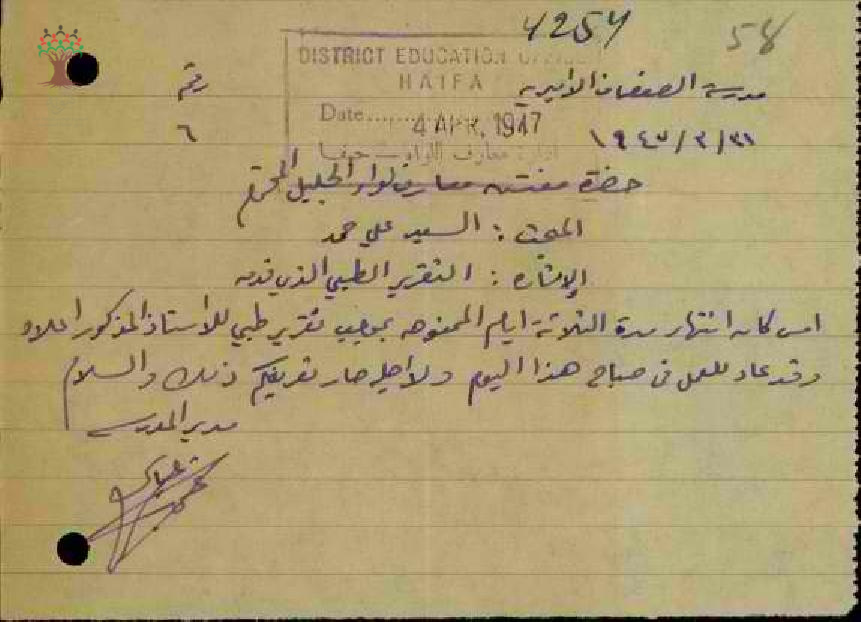 4254
58
DISTRICT EDUCATION OFFICE
HAIFA
Date.......... 4 APR. 1947
ادارة معارف اللواء – حيفا
مدرسة الصفصاف الاميرية
رقم
٦
١٩٤٧/٣/٣١
حضرة مفتش معارف لواء الجليل المحترم
المبحث : السيد علي حمد
الإشارة : التقرير الطبي الذي قدمه
امس كان انتهاء مدة الثلاثة ايام الممنوحه بموجب تقرير طبي للأستاذ المذكور اعلاه
وقد عاد للعمل في صباح هذا اليوم ولاجله صار تعريفكم ذلك والسلام
مدير المدرسه